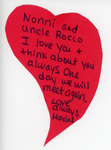 Nonni and
uncle Rocco
I love you +
think about you
always One
day we will
meet again.
Love
always
Maria